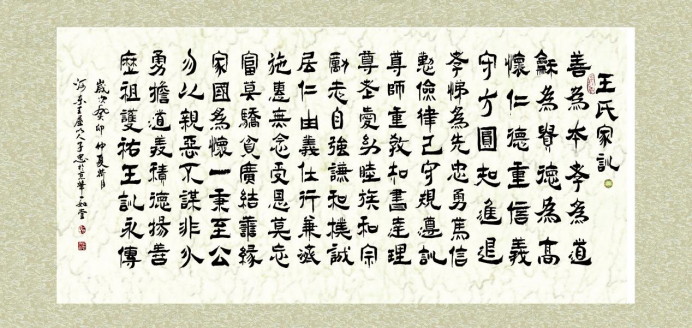 王氏家訓
善為本孝為道
龢為貴德為高
懷仁德重信義
守方圓知進退
孝悌為先忠勇篤信
懃儉律己守規遵訓
尊師重教知書達理
尊老愛幼睦族和宗
勵志自強謙和樸誠
居仁由義仕行兼遠
施惠無念受恩莫忘
富莫驕貪廣結善緣
家國為懷一秉至公
勿以親惡不謀非分
勇擔道義積德揚善
歷祖護祐王訓永傳
歲次癸卯仲夏